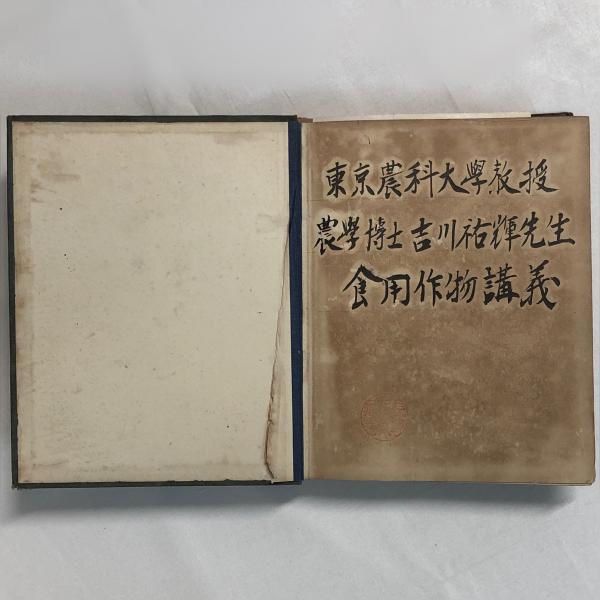 東京農科大學教授
農學博士吉川祐輝先生
食用作物講義